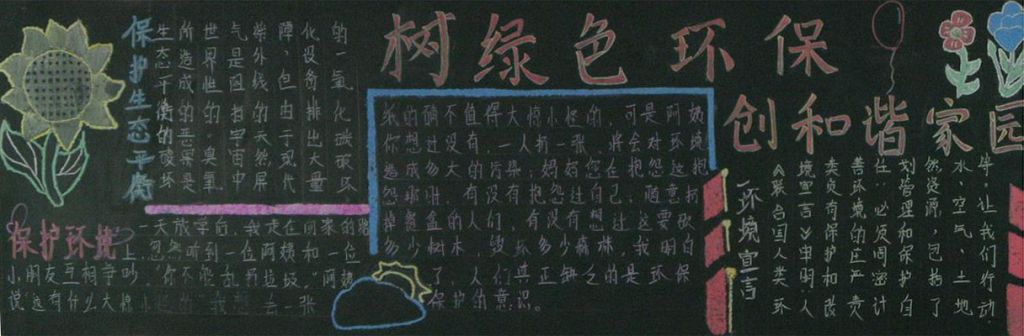 树绿色环保
创和谐家园
保护生态平衡
生态平衡的破坏
所造成的恶果是
世界性的。臭氧
气是阻挡宇宙中
紫外线的天然屏
障，但由于现代
化设备排出大量
的一氧化碳破坏
保护环境
一天放学后，我走在回家的路
上，忽然听到一位阿姨和一位
小朋友互相争吵，“你不能乱扔垃圾”，阿姨
说这有什么大惊
纸的确不值得大惊小怪的，可是阿姨
你想过没有，一人扔一张，将会对环境
造成多大的污染；妈妈您在抱怨这
怨那时，有没有抱怨过自己，随意扔
掉餐盒的人们，有没有想过这要砍
多少树木，毁坏多少森林，我明白
了，人们真正缺乏的是环保
保护的意识。
环境宣言
《联合国人类环
境宣言》申明人
类负有保护和改
善环境的庄严责
任：必须周密计
划管理和保护自
然资源，包括了
水、空气、土地
等。让我们行动